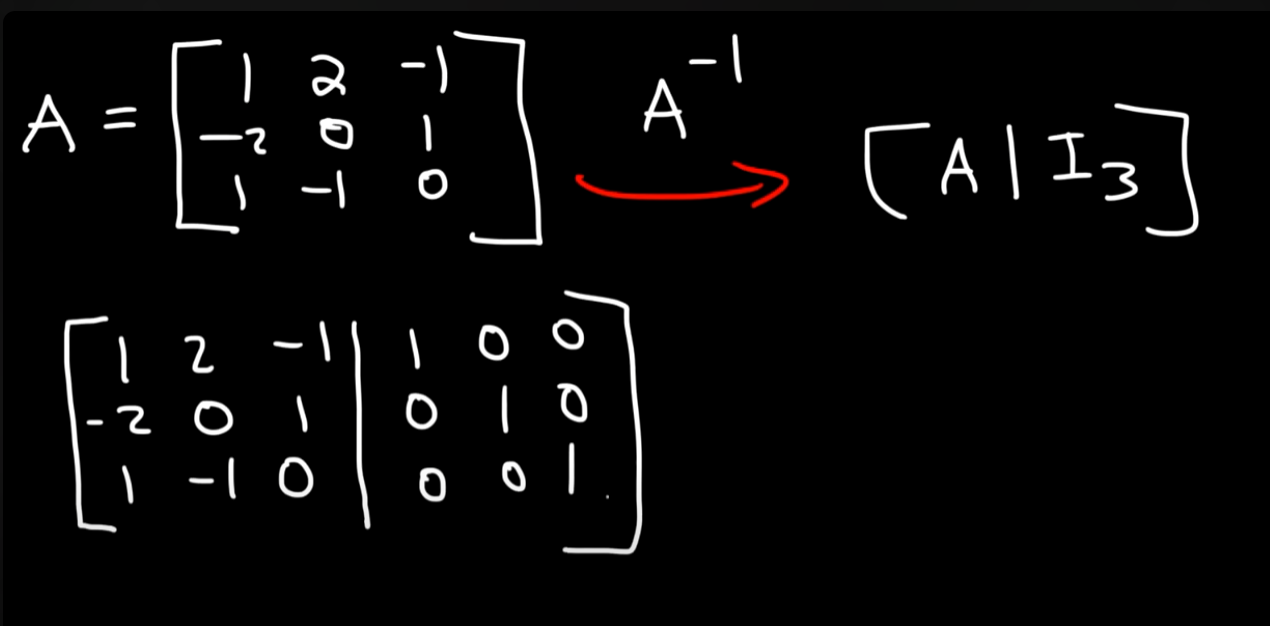 A = [ 1 2 -1
-2 0 1
1 -1 0 ]
A^-1
[ A | I_3 ]
[ 1 2 -1 | 1 0 0
-2 0 1 | 0 1 0
1 -1 0 | 0 0 1 ]